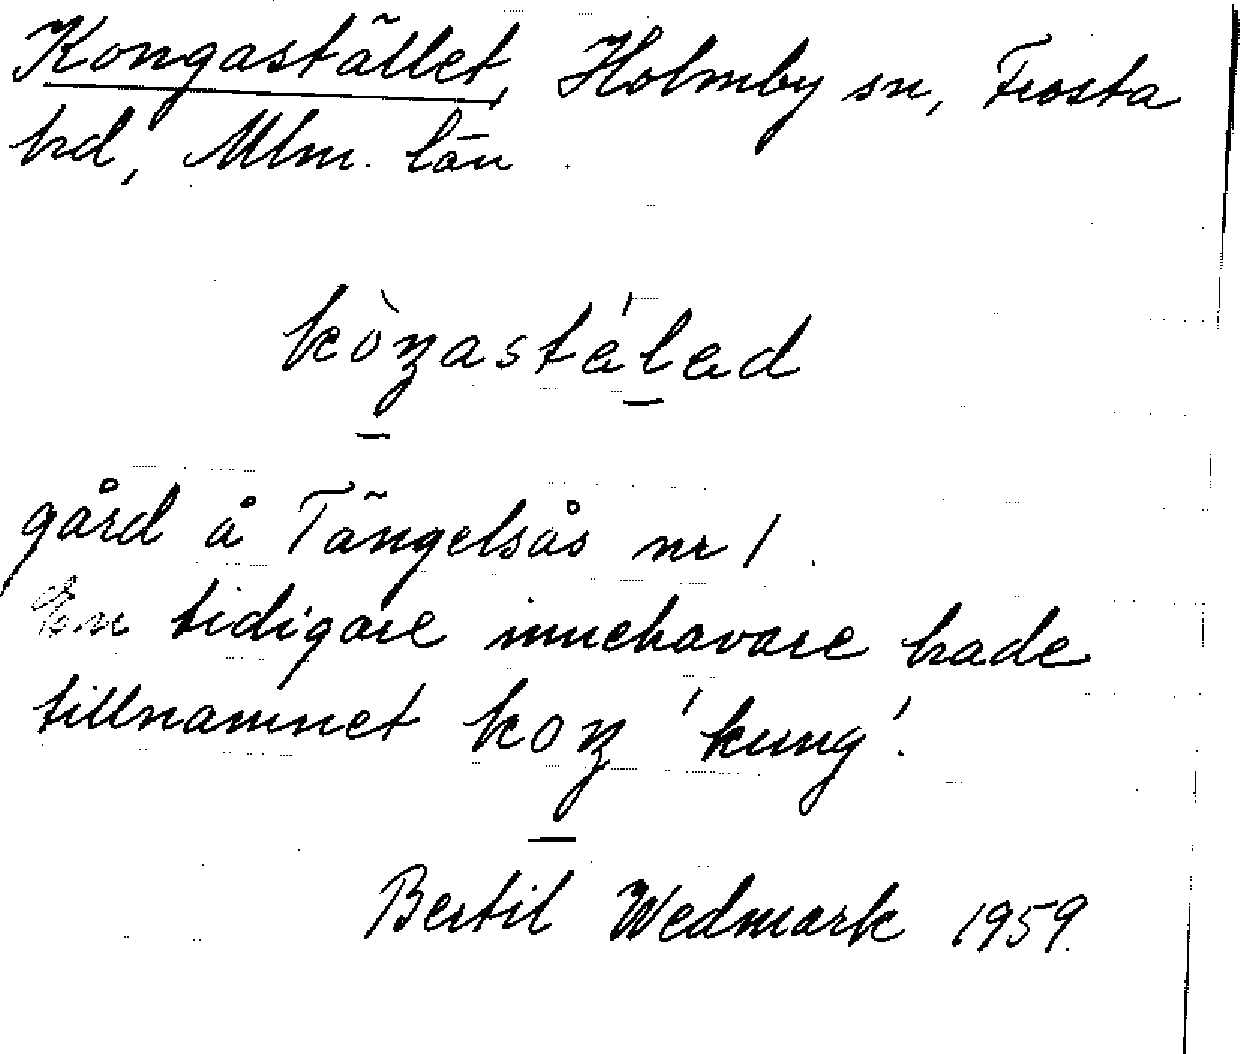 Kongastället, Holmby sn, Frosta
hd, Mlm. län
kòŋastálad
gård å Tängelsås nr 1.
En tidigare innehavare hade
tillnamnet koŋ 'kung'.
Bertil Wedmark 1959.